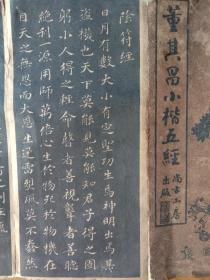 陰符經
日月有數大小有定聖功生焉神明出焉其
盜機也天下莫能見莫能知君子得之固
躬小人得之輕命瞽者善聽聾者善視
絕利一源用師萬倍心生於物死於物機在
目天之無恩而大恩生迅雷烈風莫不蠢然
董其昌小楷五經
尚古山房
出版